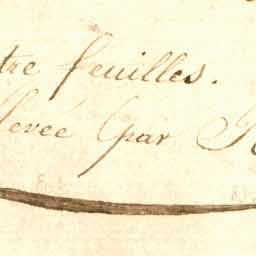 tre feuilles.
levée par